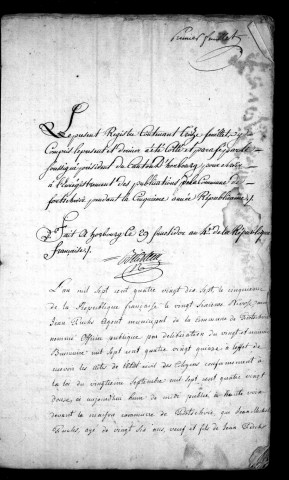 Premier feuillet
Le present Registre Contenant treize feuillets y
Compris le present et dernier a été Cotté et paraffé par le
soussigné président du Canton d'horbourg, pour servir
à l'Enregistrement des publications de la Commune de
pendant la Cinquieme année Républicaine.
Fait à horbourg le 29 fructidor au 4e de la République
française.
L'an mil sept cent quatre vingt dix sept, le cinquieme
de la République française, le vingt sixieme Nivose,
Jean Fuchs Agent municipal de la Commune de
nommé Officier publique par deliberation du vingt et neuvieme
Brumaire mil sept cent quatre vingt quinze à l'effet de
recevoir les actes de l'état civil des Citoyens conformement à
la loi du vingtieme Septembre mil sept cent quatre vingt
douze, à aujourd'hui heure de midi publié à haute voix
devant la maison commune de que Jean Michel
Fuchs, agé de vingt six ans, veuf et fils de Jean Fuchs